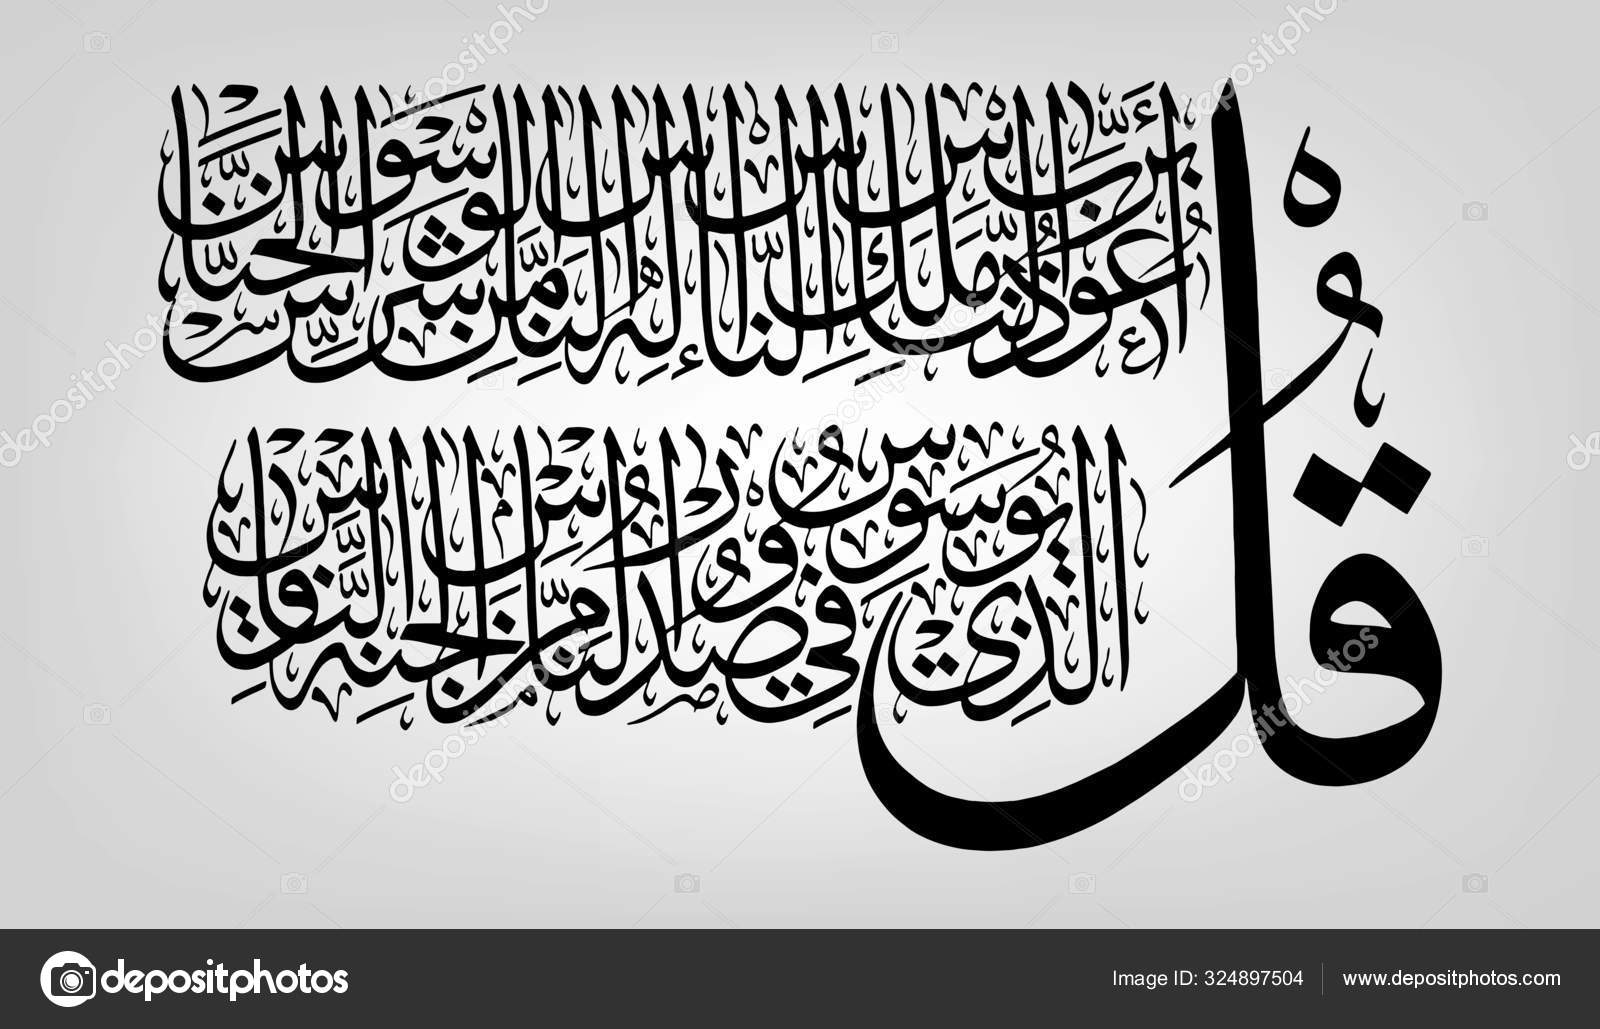 قُلْ أَعُوذُ بِرَبِّ النَّاسِ مَلِكِ النَّاسِ إِلَٰهِ النَّاسِ مِن شَرِّ الْوَسْوَاسِ الْخَنَّاسِ
الَّذِي يُوَسْوِسُ فِي صُدُورِ النَّاسِ مِنَ الْجِنَّةِ وَالنَّاسِ
depositphotos
Image ID: 324897504 www.depositphotos.com